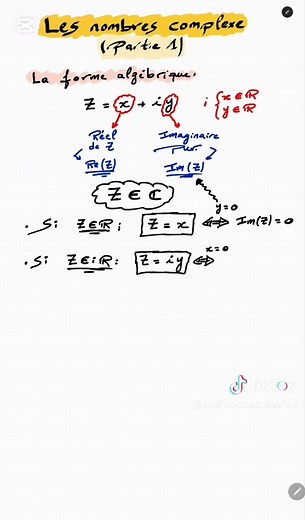 Les nombres complexe
(Partie 1)
La forme algébrique.
Z = x + iy ; { x ∈ ℝ
y ∈ ℝ
Réel de Z
Imaginaire pur.
Re(Z)
Im(Z)
Z ∈ ℂ
y=0
. Si Z∈ℝ ; Z = x ⟺ Im(Z) = 0
x=0
. Si Z∈iℝ : Z = iy ⟺